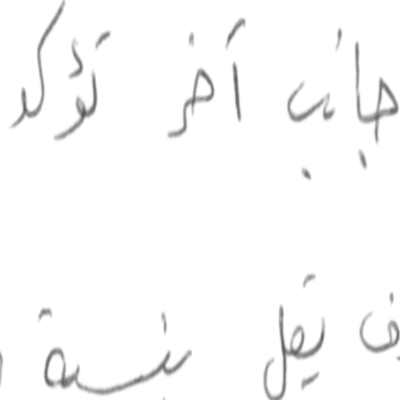 جانب آخر تؤكد
يقل بنسبة